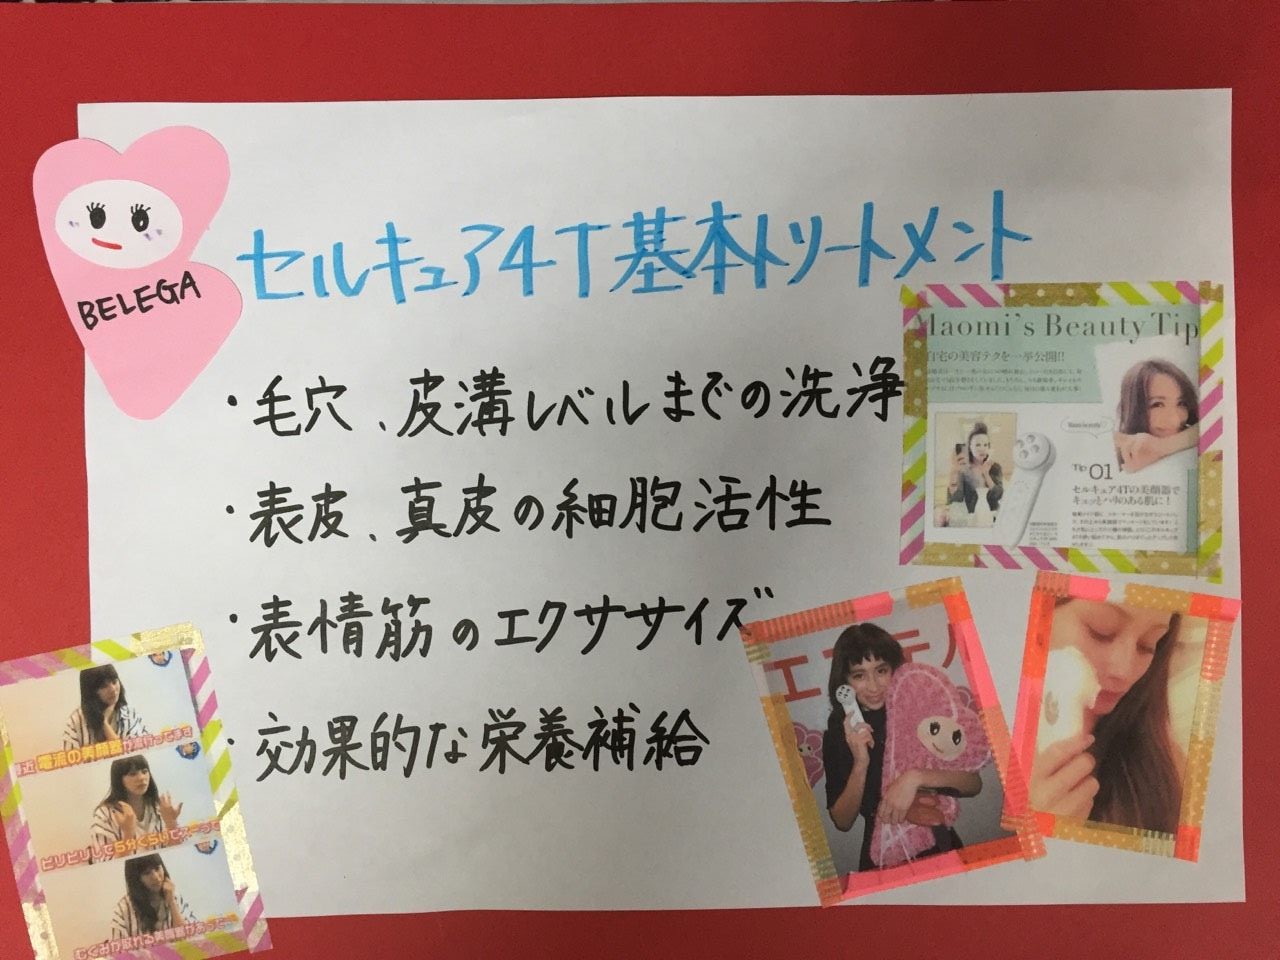 BELEGA
セルキュア4T基本トリートメント
・毛穴、皮溝レベルまでの洗浄
・表皮、真皮の細胞活性
・表情筋のエクササイズ
・効果的な栄養補給
Maomi's Beauty Tip
自宅の美容テクを一挙公開!!
Tip 01
セルキュア4Tの美顔器で
キュッとハリのある肌に!
エステル
近 電流の美顔器が流行ってます
ピリピリして5分ぐらいでスーって
むくみが取れる美顔器があって